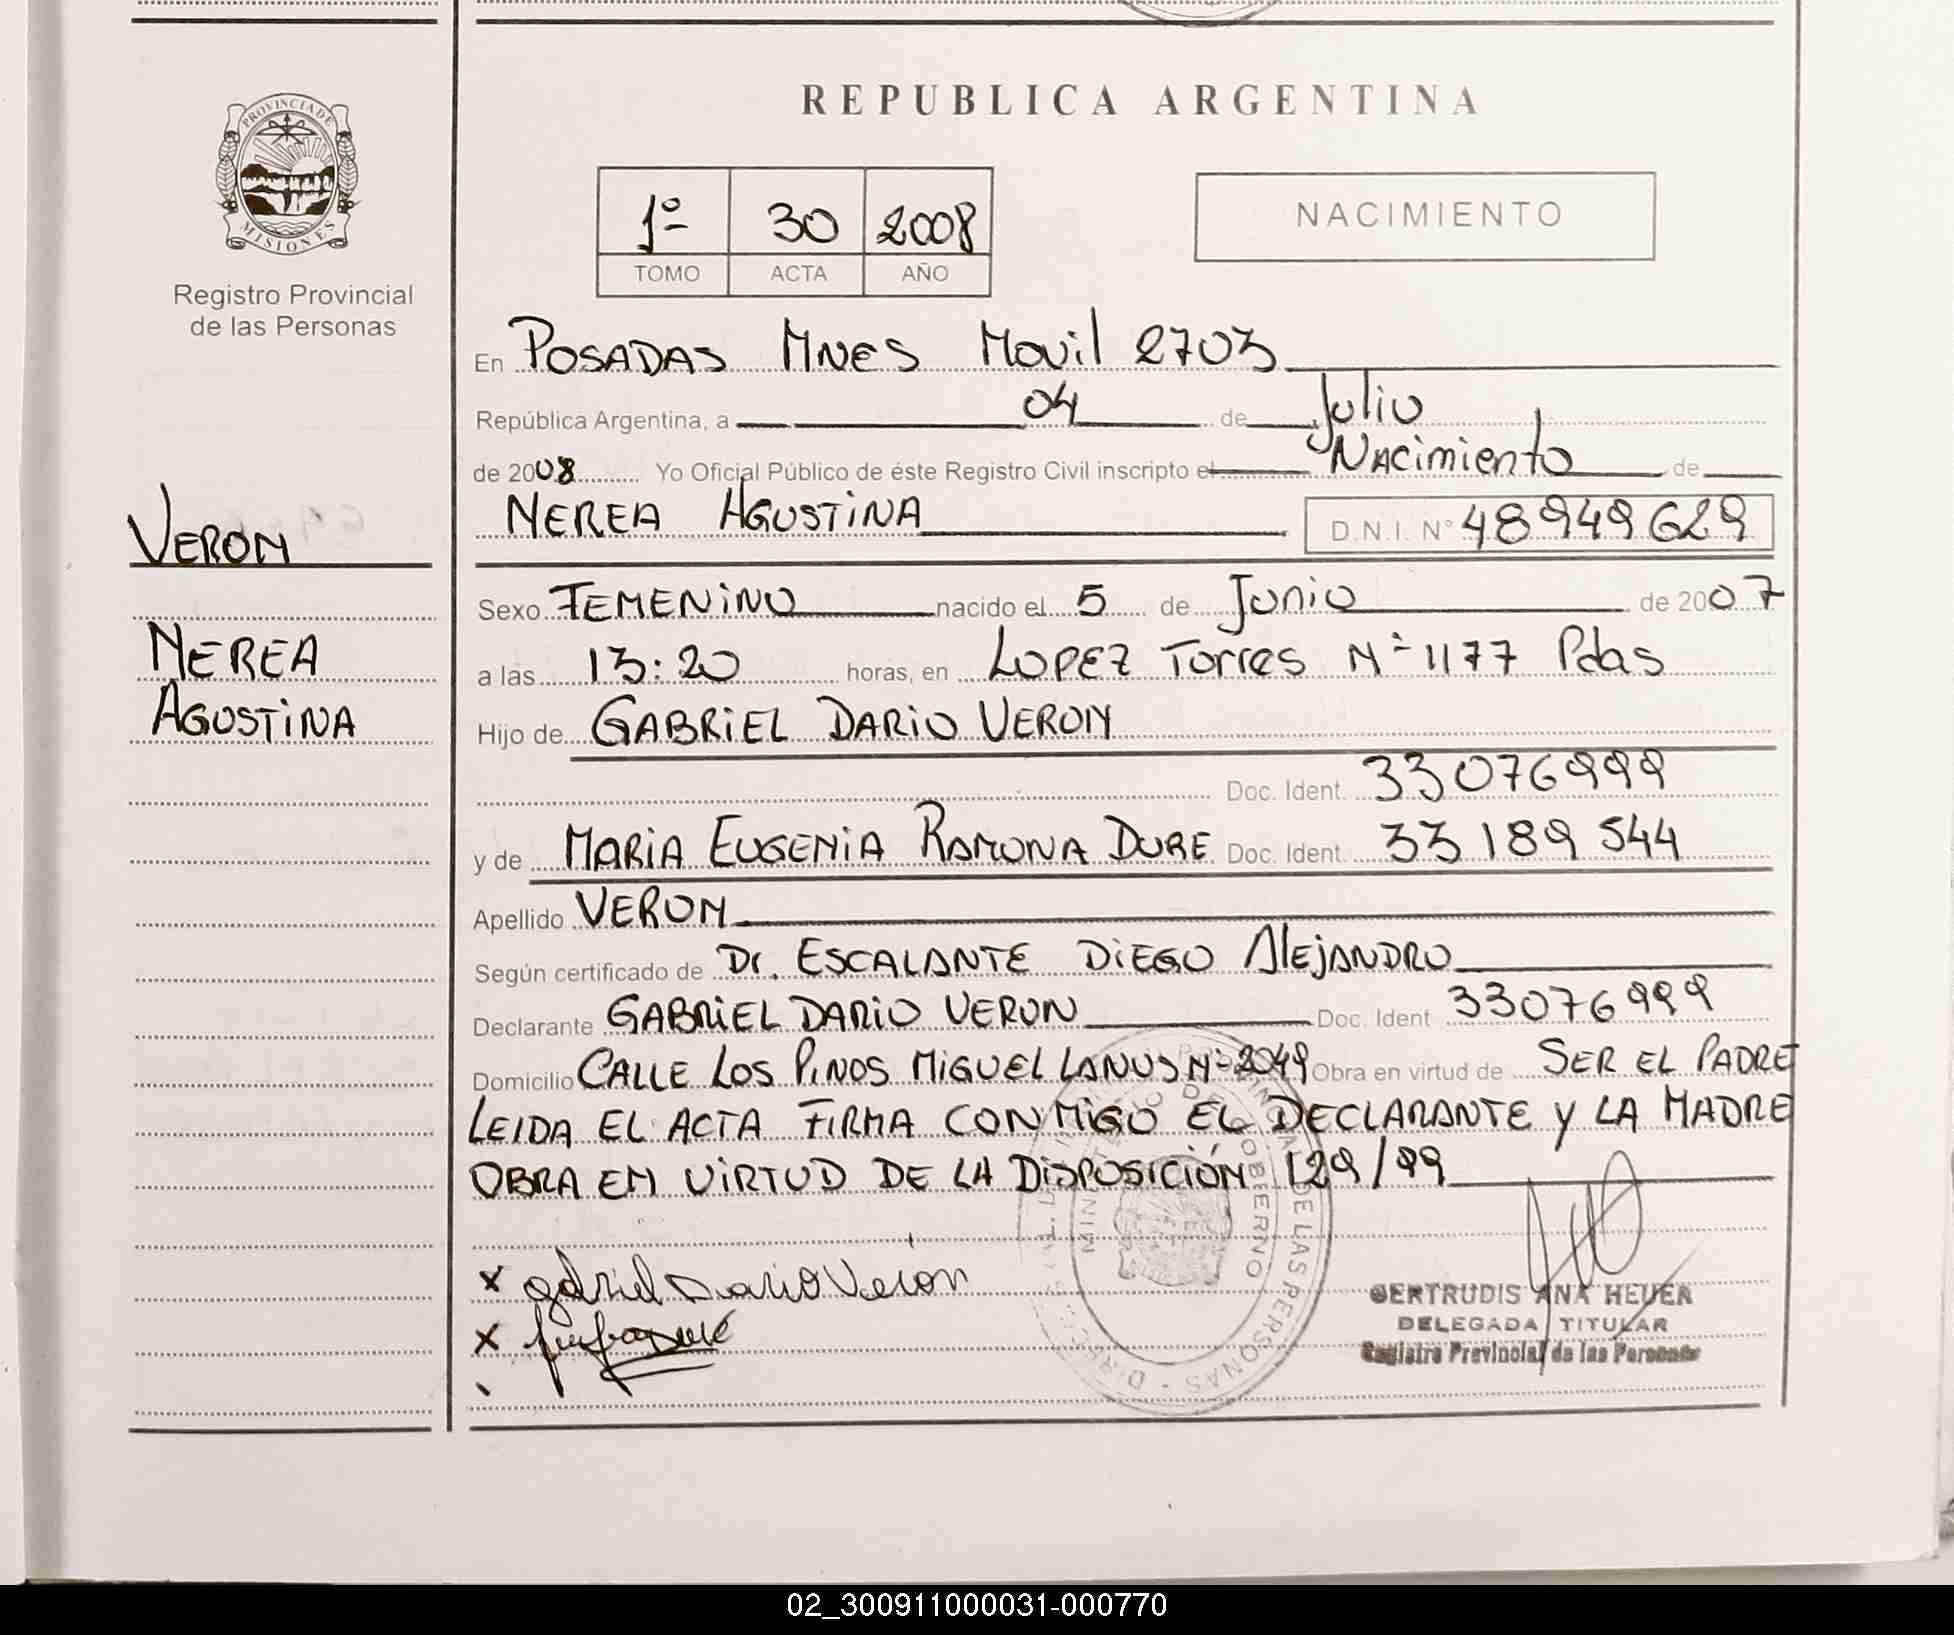 REPUBLICA ARGENTINA
PROVINCIA DE MISIONES
Registro Provincial
de las Personas
1º 30 2008
TOMO ACTA AÑO
NACIMIENTO
En POSADAS MNES Movil 2703
República Argentina, a 04 de Julio
de 2008 Yo Oficial Público de éste Registro Civil inscripto el Nacimiento de
VERON
NEREA AGUSTINA D.N.I. Nº 48949629
Sexo FEMENINO nacido el 5 de Junio de 2007
NEREA
AGUSTINA
a las 13:20 horas, en LOPEZ Torres Nº 1177 Pdas
Hijo de GABRIEL DARIO VERON
Doc. Ident. 33076999
y de MARIA EUGENIA RAMONA DURE Doc. Ident. 33189544
Apellido VERON
Según certificado de Dr. ESCALANTE DIEGO ALEJANDRO
Declarante GABRIEL DARIO VERON Doc. Ident 33076999
Domicilio CALLE LOS PINOS MIGUEL LANUS Nº 2049 Obra en virtud de SER EL PADRE
LEIDA EL ACTA FIRMA CONMIGO EL DECLARANTE Y LA MADRE
OBRA EN VIRTUD DE LA DISPOSICIÓN 129/99
x Gabriel Dario Veron
x Duré
GERTRUDIS ANA HEUER
DELEGADA TITULAR
Registro Provincial de las Personas
DE LAS PERSONAS
GOBIERNO
02_300911000031-000770